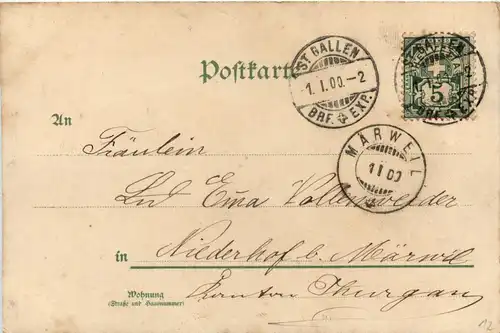 ST. GALLEN
1.I.00.-2
BRF. EXP.
Postkarte
ST. GALLEN
5
BRF. EXP.
MÄRWEIL
1 I 00
An
Fräulein
Emma Vollenweider
in Niederhof b. Märwil
Wohnung
(Straße und Hausnummer)
Kanton Thurgau